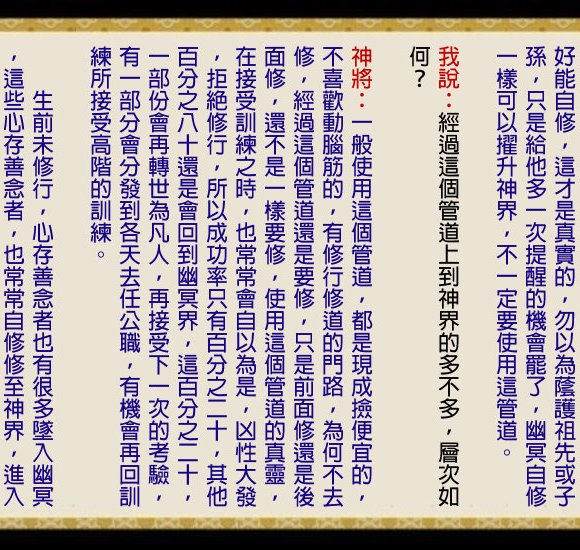 好能自修，這才是真實的，勿以為蔭護祖先或子
孫，只是給他多一次提醒的機會罷了，幽冥自修
一樣可以擢升神界，不一定要使用這管道。
我說：經過這個管道上到神界的多不多，層次如
何？
神將：一般使用這個管道，都是現成撿便宜的，
不喜歡動腦筋的，有修行修道的門路，為何不去
修，經過這個管道還是要修，只是前面修還是後
面修，還不是一樣要修，使用這個管道的真靈，
在接受訓練之時，也常常會自以為是，凶性大發
，拒絕修行，所以成功率只有百分之二十，其他
百分之八十還是會回到幽冥界，這百分之二十，
一部份會再轉世為凡人，再接受下一次的考驗，
有一部分會分發到各天去任公職，有機會再回訓
練所接受高階的訓練。
生前未修行，心存善念者也有很多墜入幽冥
，這些心存善念者，也常常自修修至神界，進入